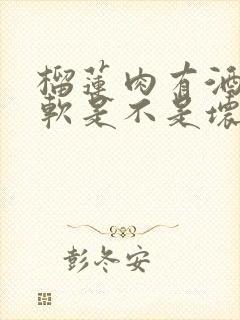 榴蓮肉有酒
軟是不是壞
彭冬安